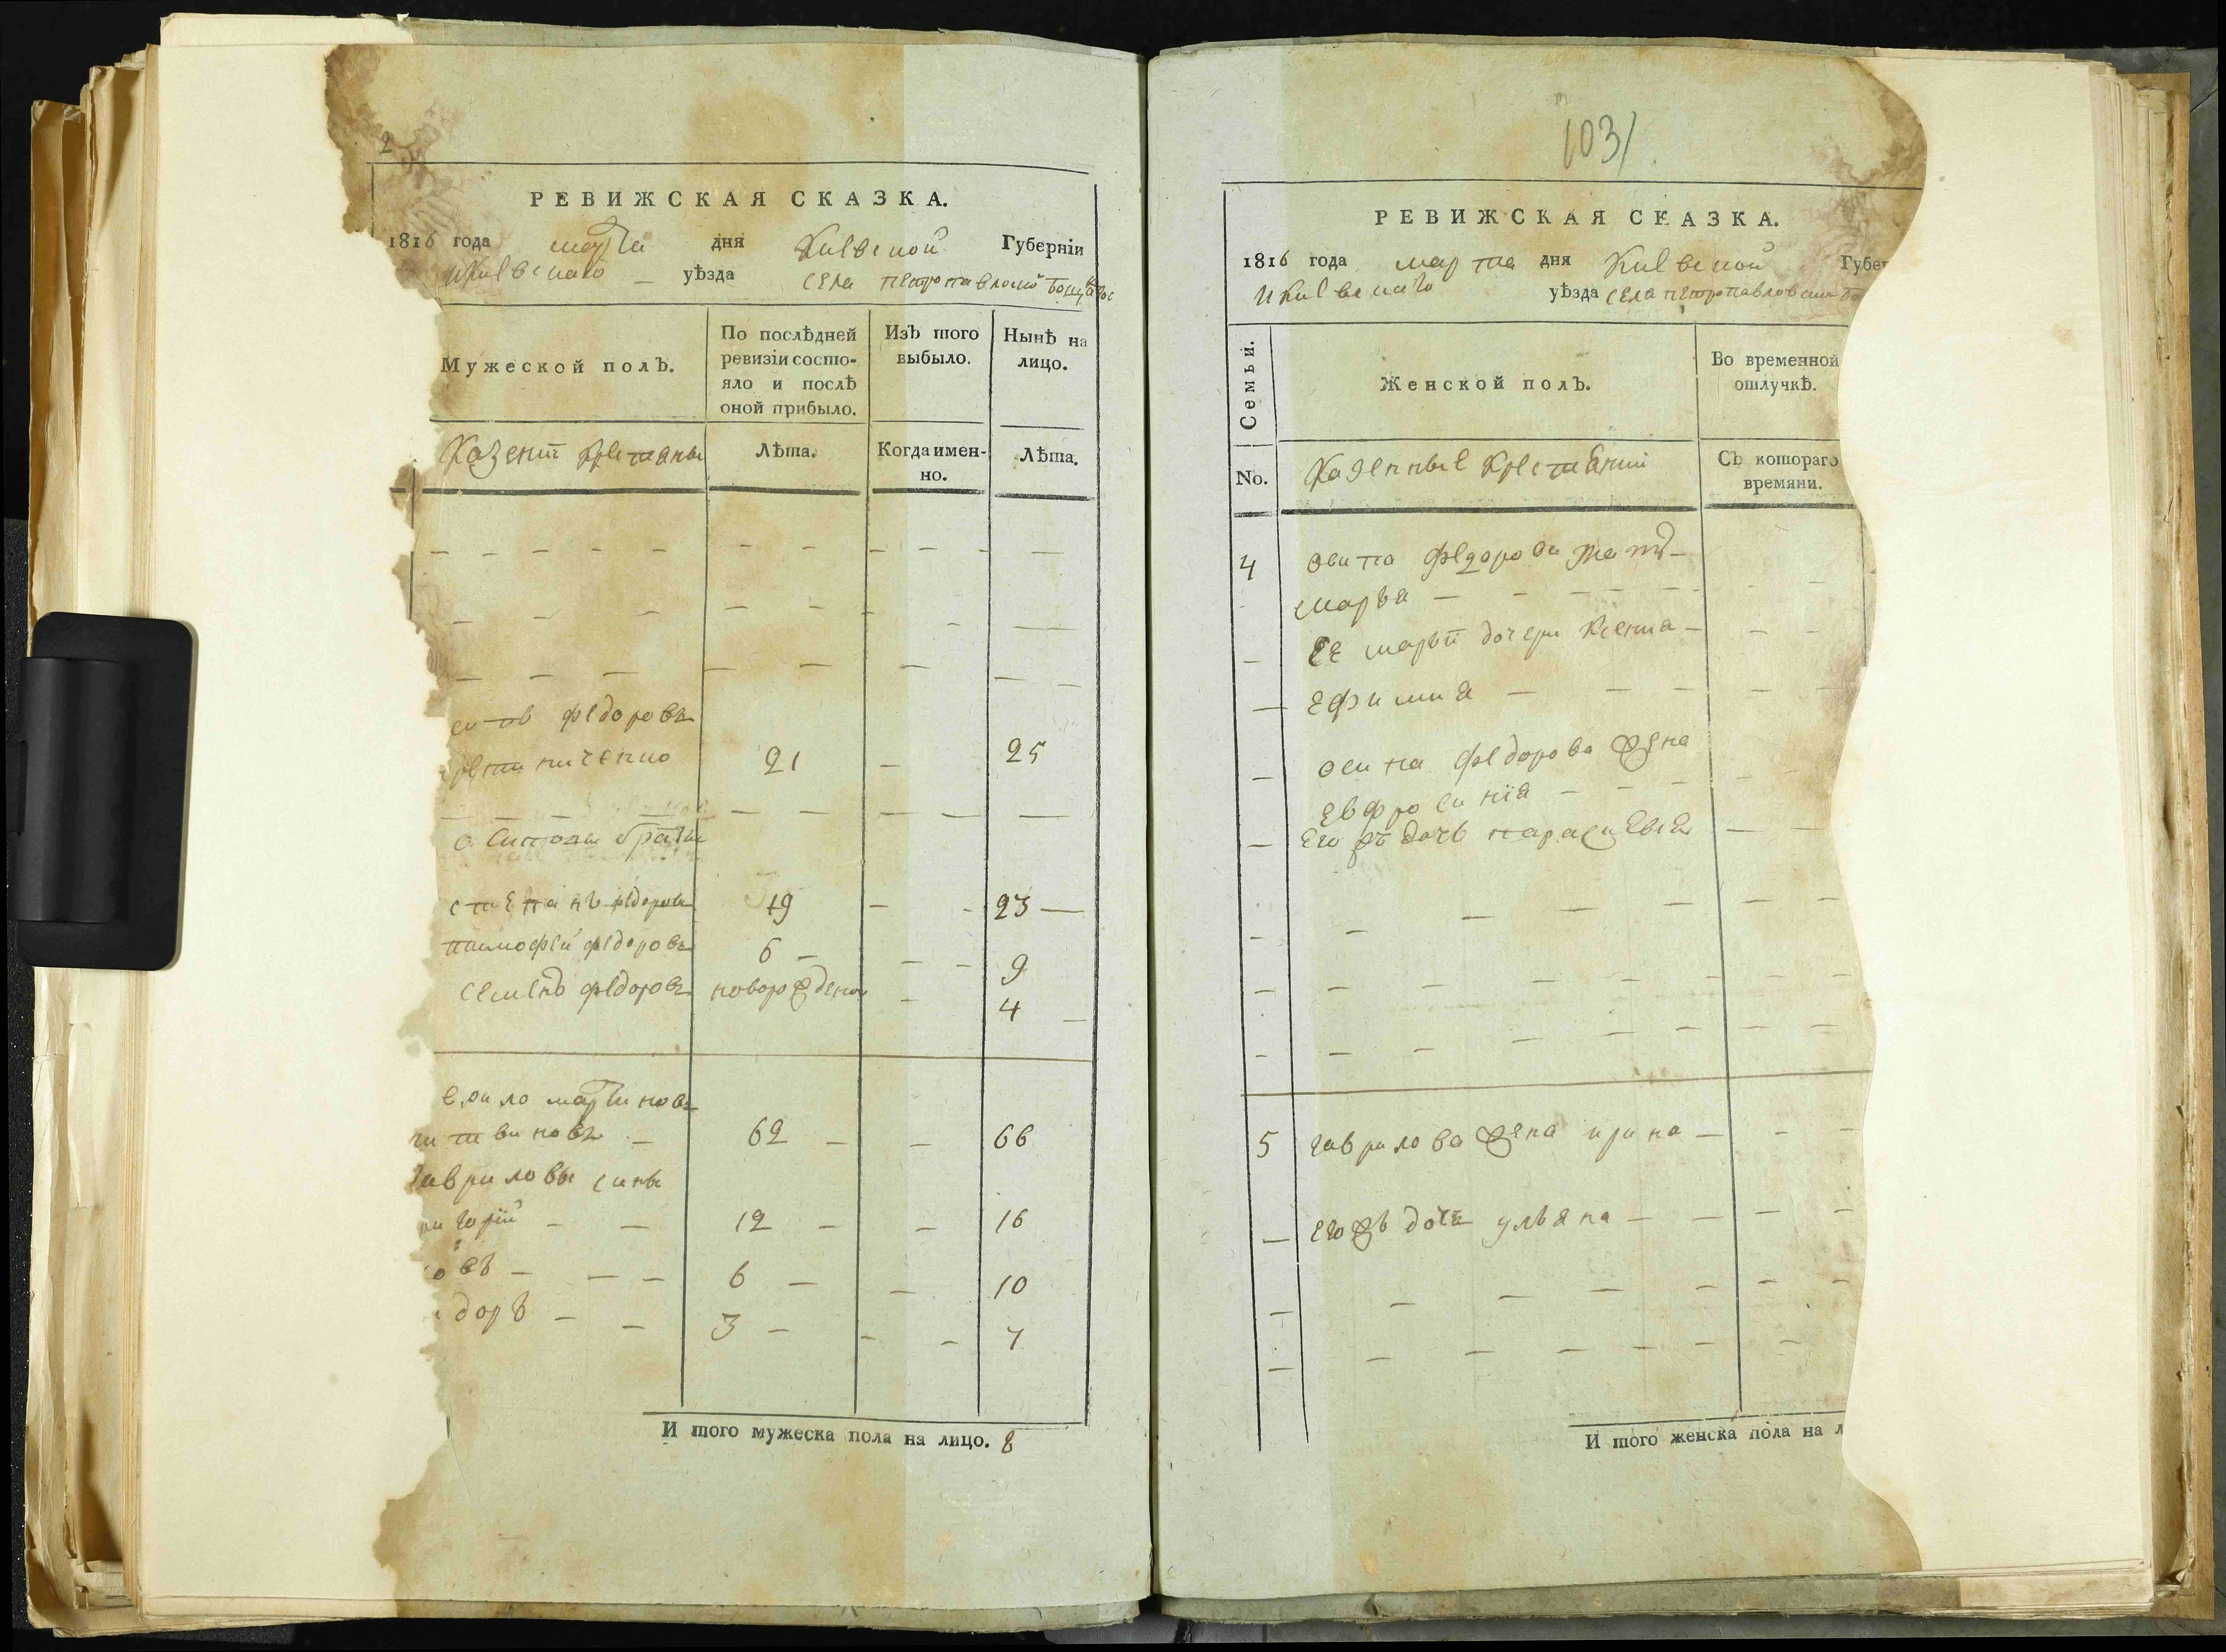 2
РЕВИЖСКАЯ СКАЗКА.
1816 года марта дня Киевской Губерніи
И Киевскаго уѣзда села петропавлской
Мужеской полъ.
По послѣдней ревизіи состояло и послѣ оной прибыло.
Изъ того выбыло.
Нынѣ на лицо.
Казент крестяны
Лѣта.
Когда имен-
но.
Лѣта.
федоровъ
21 25
братия
степанъ федоровъ 19 23
тимофей федоровъ 6 9
семенъ федоровъ новорожденой 4
врило мартиновъ
62 66
Гавриловы сины
горій 12 16
овъ 6 10
доръ 3 7
И того мужеска пола на лицо. 8
103
РЕВИЖСКАЯ СКАЗКА.
1816 года марта дня Киевской Губер
И Киевскаго уѣзда села петропавловски
Семьи.
Женской полъ.
Во временной
отлучкѣ.
No.
Казенные Крестянки
Съ котораго
времяни.
4 осипа федорова мать
марья
Ее марьи дочери Ксения
Ефимия
осипа федорова жена
Евфросинія
Его жъ дочь параскевия
5 гаврилова жена ирина
его жъ дочь ульяна
И того женска пола на л